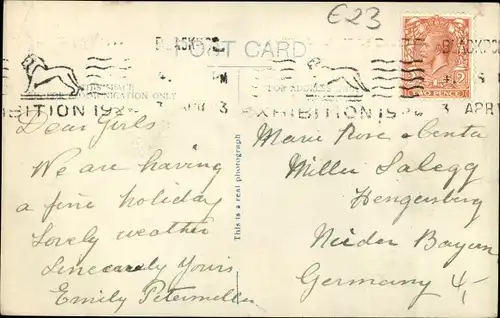 £23
BLACKPO
POST CARD
TWO PENCE
COMMUNICATION ONLY
FOR ADDRESS
EXHIBITION 19
3 APR
IBITION 192
3 APR 3
Dear Girls
We are having
a fine holiday
Lovely weather
Sincerely Yours
Emily Petermeller
This is a real photograph
Marie Rose Centa
Miller Salegg
Hengersberg
Nieder Bayern
Germany 4,-